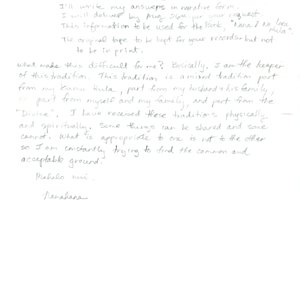 I'll write my answers in narrative form.
I will deliver by Aug per your request
This information to be used for the book, "Nana I Na Loea Hula"
The original tape to be kept for your records but not
to be in print.
What makes this difficult for me? Basically, I am the keeper
of this tradition. This tradition is a mixed tradition part
from my Kumu Hula, part from my husband's family,
part from myself and my family, and part from the
"Divine". I have received these traditions physically
and spiritually. Some things can be shared and some
cannot. What is appropriate to one is not to the other
so I am constantly trying to find the common and
acceptable ground.
Mahalo nui.